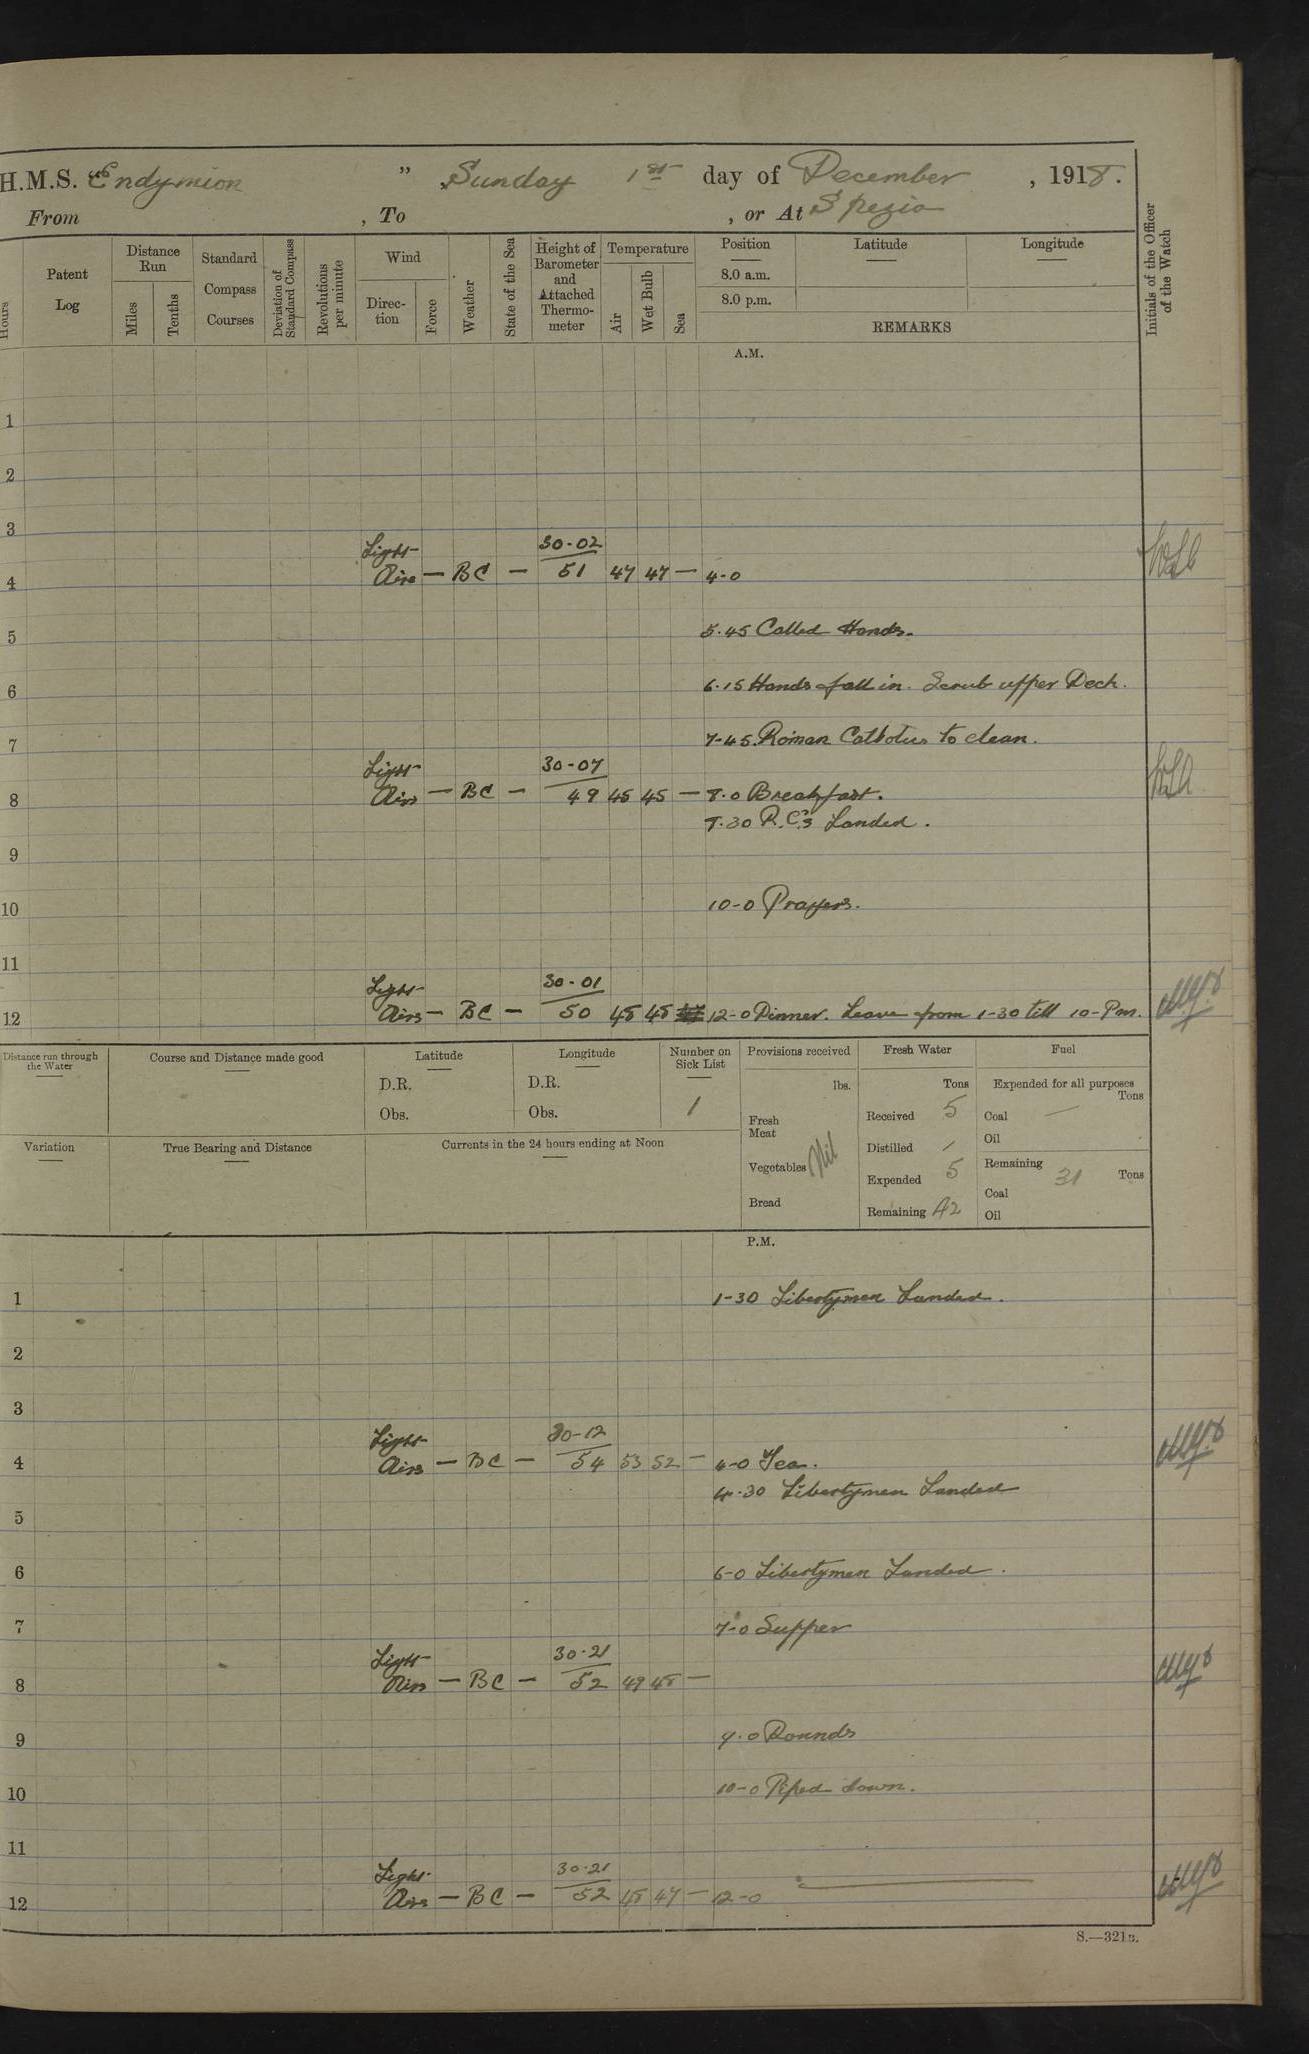 H.M.S. Endymion " Sunday 1st day of December, 1918.
From , To , or At Spezia
Hours
Patent Log
Distance Run
Miles
Tenths
Standard Compass Courses
Deviation of Standard Compass
Revolutions per minute
Wind
Direction
Force
Weather
State of the Sea
Height of Barometer and Attached Thermometer
Temperature
Air
Wet Bulb
Sea
Position
8.0 a.m.
8.0 p.m.
Latitude
Longitude
REMARKS
Initials of the Officer of the Watch
A.M.
1
2
3
Light 30-02
4 Airs — BC — 51 47 47 — 4-0
5 5.45 Called Hands.
6 6.15 Hands fall in. Scrub upper Deck.
7 7-45. Roman Catholics to clean.
Light 30-07
8 Airs — BC — 49 45 45 — 8.0 Breakfast.
8.30 R.C's Landed.
9
10 10-0 Prayers.
11
Light 30-01
12 Airs — BC — 50 48 48 12-0 Dinner. Leave from 1-30 till 10-Pm.
Distance run through the Water
Course and Distance made good
Latitude
D.R.
Obs.
Longitude
D.R.
Obs.
Number on Sick List
1
Provisions received
lbs.
Fresh Meat
Vegetables Nil
Bread
Fresh Water
Tons
Received 5
Distilled /
Expended 5
Remaining 42
Fuel
Expended for all purposes
Tons
Coal —
Oil
Remaining 31 Tons
Coal
Oil
Variation
True Bearing and Distance
Currents in the 24 hours ending at Noon
P.M.
1 1-30 Libertymen Landed.
2
3
Light 30-12
4 Airs — BC — 54 53 52 — 4-0 Tea.
4.30 Libertymen Landed
5
6 6-0 Libertymen Landed.
7 7-0 Supper
Light 30.21
8 Airs — BC — 52 49 48 —
9 9.0 Rounds
10 10-0 Piped down.
11
Light 30.21
12 Airs — BC — 52 48 47 — 12-0
S.—321B.